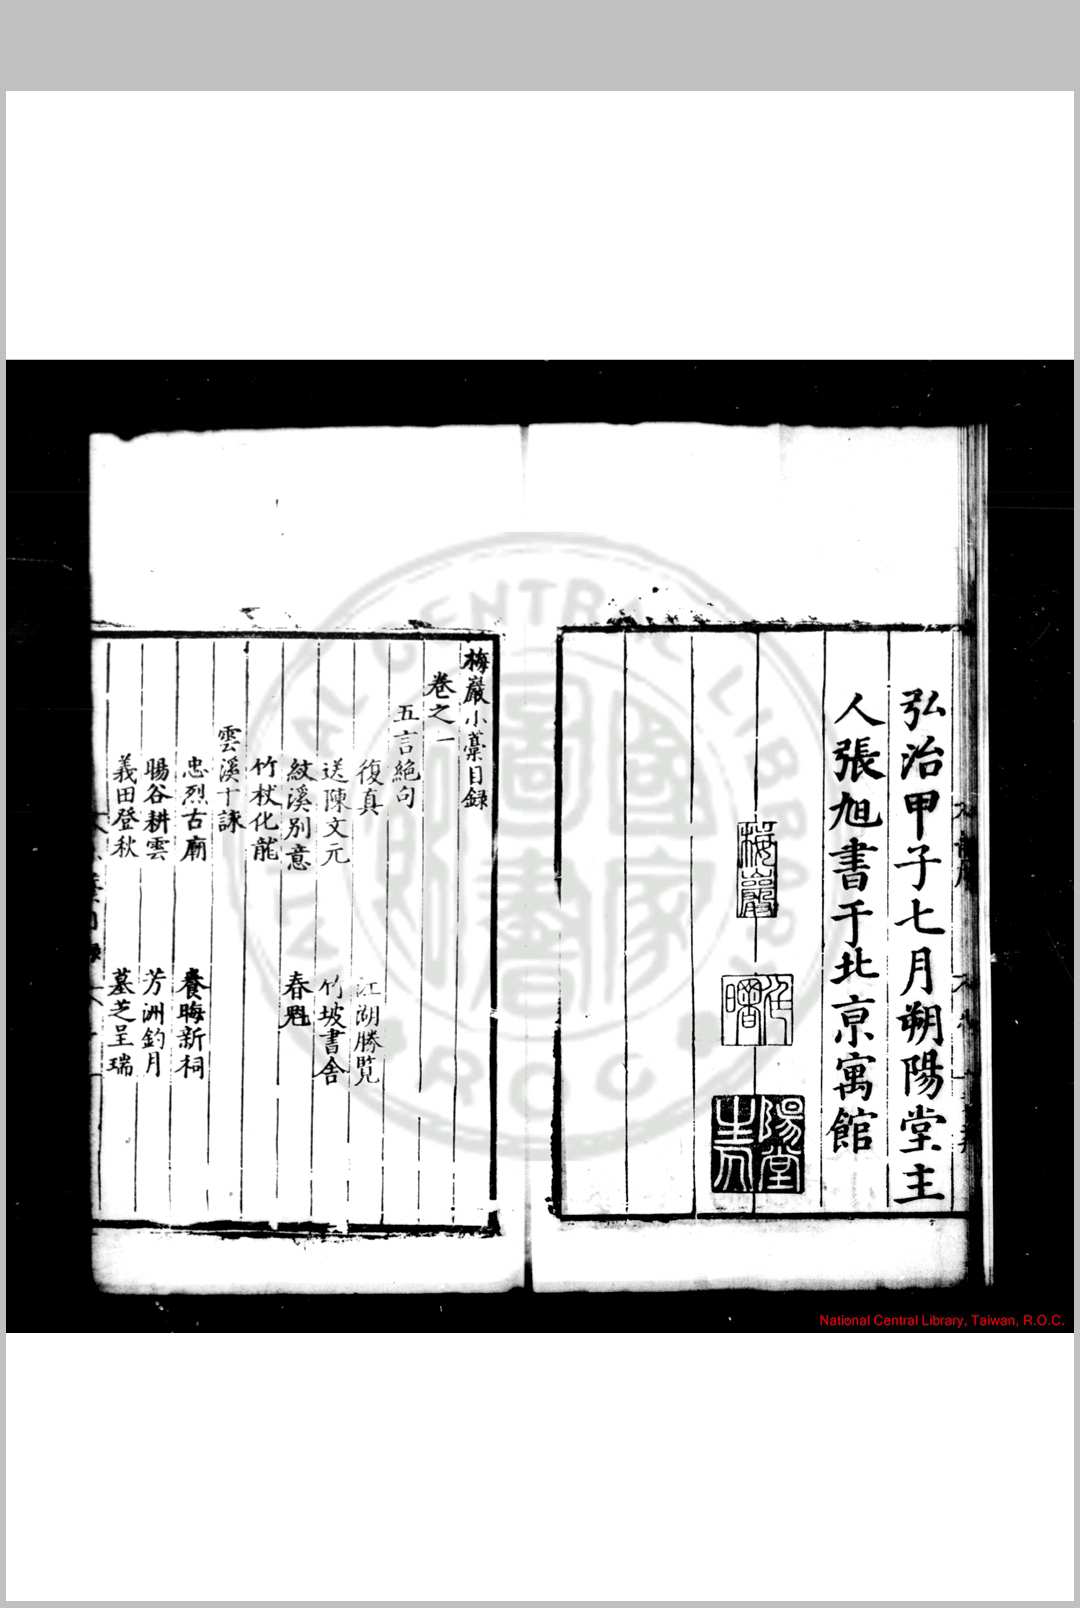 弘治甲子七月朔陽堂主
人張旭書于北京寓館
梅巖
陽堂主人
梅巖小藁目録
卷之一
五言絕句
復真
江湖勝覧
送陳文元
竹坡書舍
紋溪別意
春魁
竹杖化龍
雲溪十詠
忠烈古廟
養晦新祠
暘谷耕雲
芳洲釣月
義田登秋
墓芝呈瑞
國家圖書館
NATIONAL CENTRAL LIBRARY
R.O.C.
National Central Library, Taiwan, R.O.C.